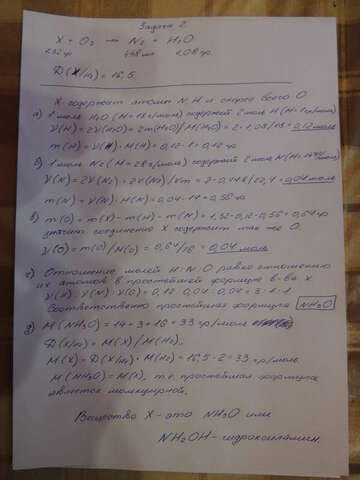 Задача 2
X + O₂ → N₂ + H₂O
1,32 гр 448 мл 1,08 гр
D(X/H₂) = 16,5
X содержит атомы N, H и скорее всего O
а) 1 моль H₂O (M=18 г/моль) содержит 2 моль H (M=1 г/моль)
ν(H) = 2ν(H₂O) = 2m(H₂O)/M(H₂O) = 2·1,08/18 = 0,12 моль
m(H) = ν(H)·M(H) = 0,12·1 = 0,12 гр
б) 1 моль N₂ (M=28 г/моль) содержит 2 моль N (M=14 г/моль)
ν(N) = 2ν(N₂) = 2V(N₂)/Vm = 2·0,448/22,4 = 0,04 моль
m(N) = ν(N)·M(N) = 0,04·14 = 0,56 гр
в) m(O) = m(X) - m(H) - m(N) = 1,32-0,12-0,56 = 0,64 гр
значит соединение X содержит так же O.
ν(O) = m(O)/M(O) = 0,64/16 = 0,04 моль
г) Отношение молей H:N:O равно отношению
их атомов в простейшей формуле в-ва X
ν(H):ν(N):ν(O) = 0,12:0,04:0,04 = 3:1:1
Соответственно простейшая формула NH₃O
д) M(NH₃O) = 14+3+16 = 33 гр/моль
D(X/H₂) = M(X)/M(H₂),
M(X) = D(X/H₂)·M(H₂) = 16,5·2 = 33 гр/моль
M(NH₃O) = M(X), т.е. простейшая формула
является молекулярной.
Вещество X - это NH₃O или
NH₂OH - гидроксиламин.